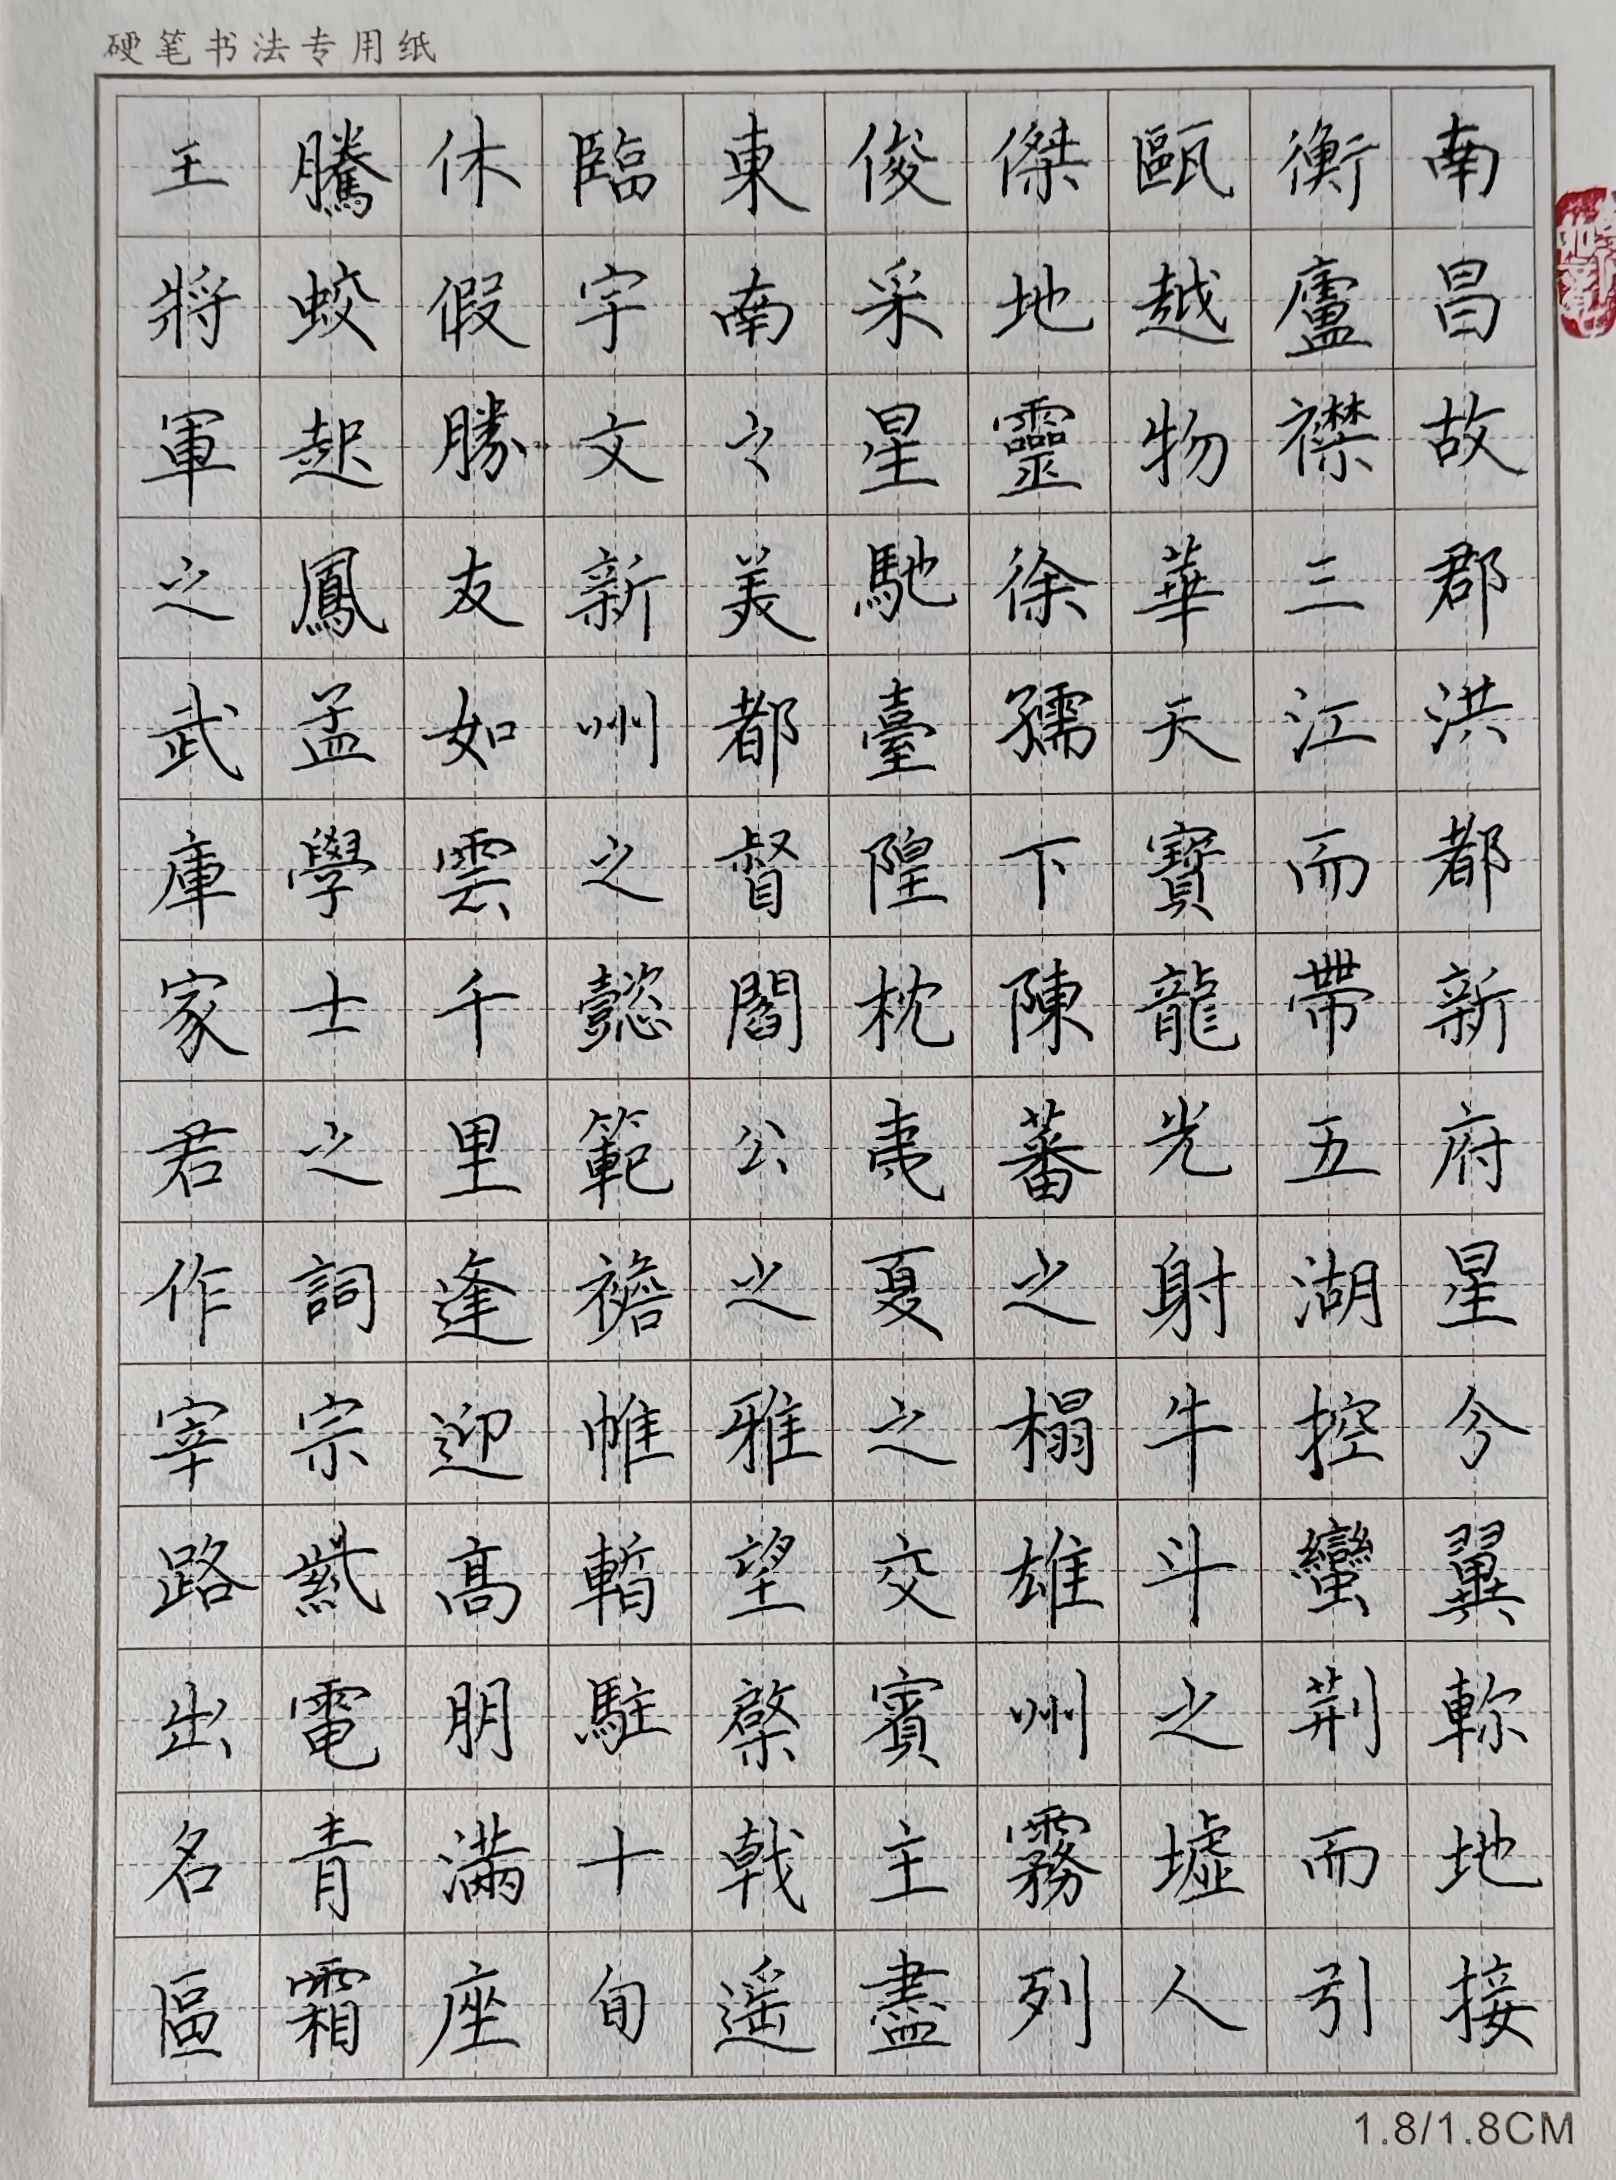 硬笔书法专用纸
南昌故郡洪都新府星分翼軫地接
衡廬襟三江而帶五湖控蠻荆而引
甌越物華天寶龍光射牛斗之墟人
傑地靈徐孺下陳蕃之榻雄州霧列
俊采星馳臺隍枕夷夏之交賓主盡
東南之美都督閻公之雅望棨戟遥
臨宇文新州之懿範襜帷暫駐十旬
休假勝友如雲千里逢迎髙朋滿座
騰蛟起鳳孟學士之詞宗紫電青霜
王將軍之武庫家君作宰路出名區
1.8/1.8CM